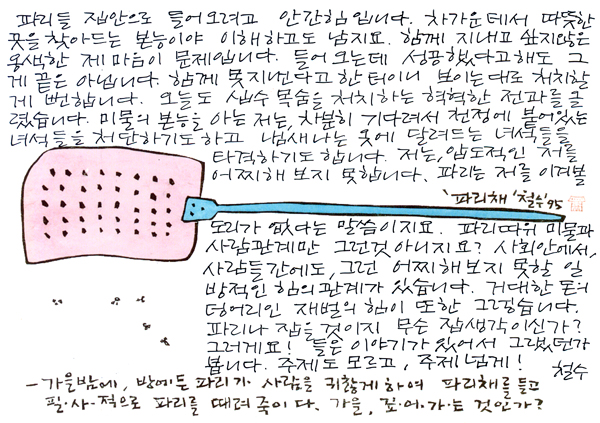 파리들 집안으로 들어오려고 안간힘입니다. 차가운데서 따뜻한
곳을 찾아드는 본능이야 이해하고도 남지요. 함께 지내고 싶지않은
옹색한 제 마음이 문제입니다. 들어오는데 성공했다고해도 그
게 끝은 아닙니다. 함께 못지낸다고 한 터이니 보이는대로 처치할
게 뻔합니다. 오늘도 십수 목숨을 처치하는 혁혁한 전과를 올
렸습니다. 미물의 본능을 아는 저는, 차분히 기다려서 천정에 붙어있는
녀석들을 처단하기도 하고 냄새나는 옷에 달려드는 녀석들을
타격하기도 합니다. 저는, 압도적인 저를
어찌해 보지 못합니다. 파리는 저를 이겨볼
'파리채' 철수 '95
도리가 없다는 말씀이지요. 파리따위 미물과
사람관계만 그런것 아니지요? 사회안에서,
사람들간에도, 그런 어찌해보지 못할 일
방적인 힘의 관계가 있습니다. 거대한 돈의
덩어리인 재벌의 힘이 또한 그렇습니다.
파리나 잡을 것이지 무슨 잡생각이신가?
그러게요! 들은 이야기가 있어서 그랬던가
봅니다. 주제도 모르고, 주제넘게! 철수
- 가을밤에, 방에든 파리가 사람을 귀찮게하여 파리채를 들고
필·사·적으로 파리를 때려죽이다. 가을, 깊·어·가·는 것인가?